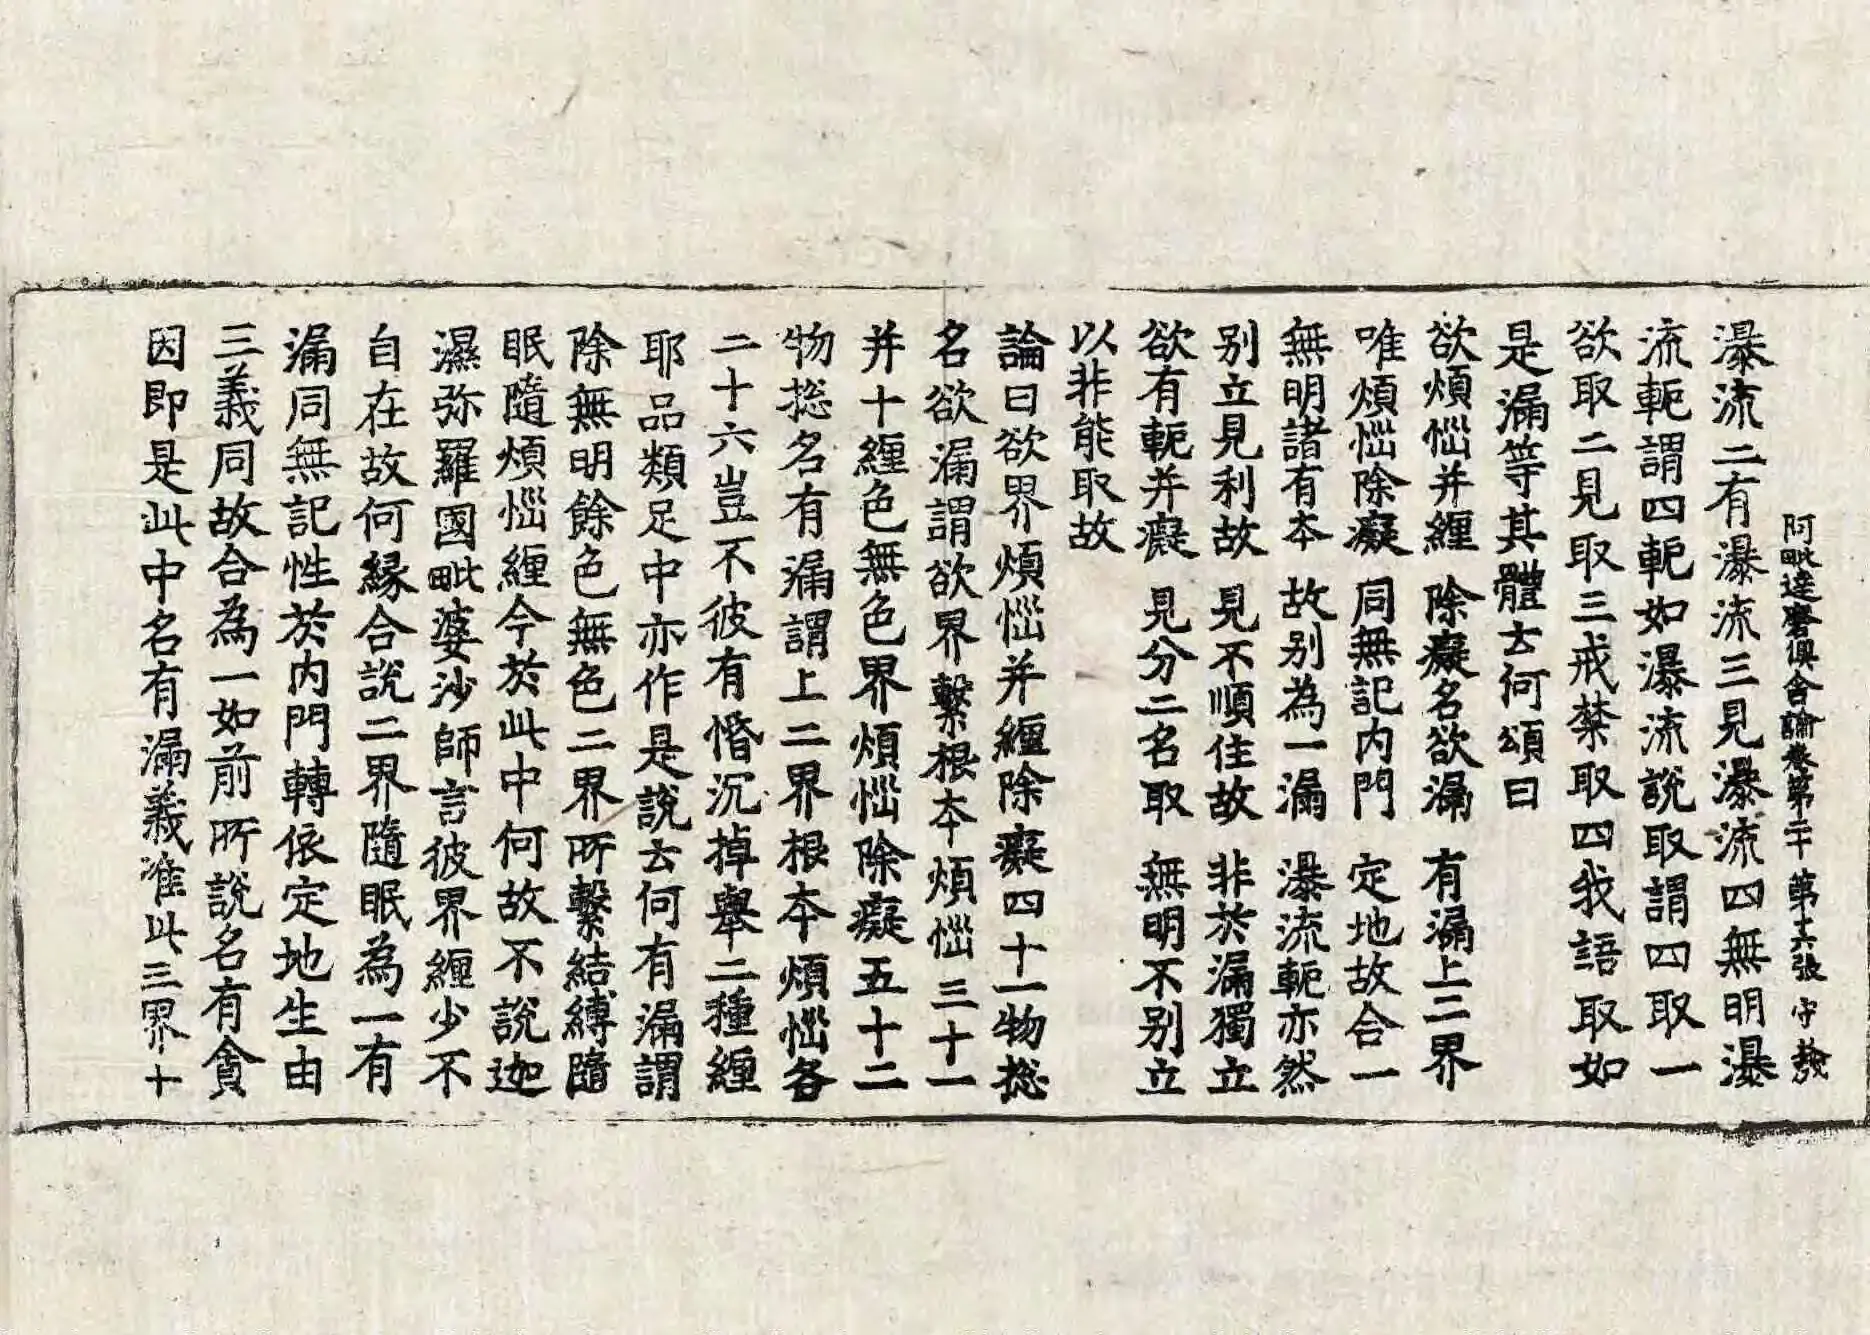 阿毗達磨俱舍論卷第二十　第十六張　守　𤼵
瀑流二有瀑流三見瀑流四無明瀑
流軛謂四軛如瀑流說取謂四取一
欲取二見取三戒禁取四我語取如
是漏等其體云何頌曰
欲煩惱并纏　除癡名欲漏　有漏上二界
唯煩惱除癡　同無記內門　定地故合一
無明諸有本　故別為一漏　瀑流軛亦然
別立見利故　見不順住故　非於漏獨立
欲有軛并癡　見分二名取　無明不別立
以非能取故
論曰欲界煩惱并纏除癡四十一物捴
名欲漏謂欲界繫根本煩惱三十一
并十纏色無色界煩惱除癡五十二
物捴名有漏謂上二界根本煩惱各
二十六豈不彼有惛沉掉舉二種纏
耶品類足中亦作是說云何有漏謂
除無明餘色無色二界所繫結縛隨
眠隨煩惱纏今於此中何故不說迦
濕弥羅國毗婆沙師言彼界纏少不
自在故何緣合說二界隨眠為一有
漏同無記性於內門轉依定地生由
三義同故合為一如前所說名有貪
因即是此中名有漏義准此三界十